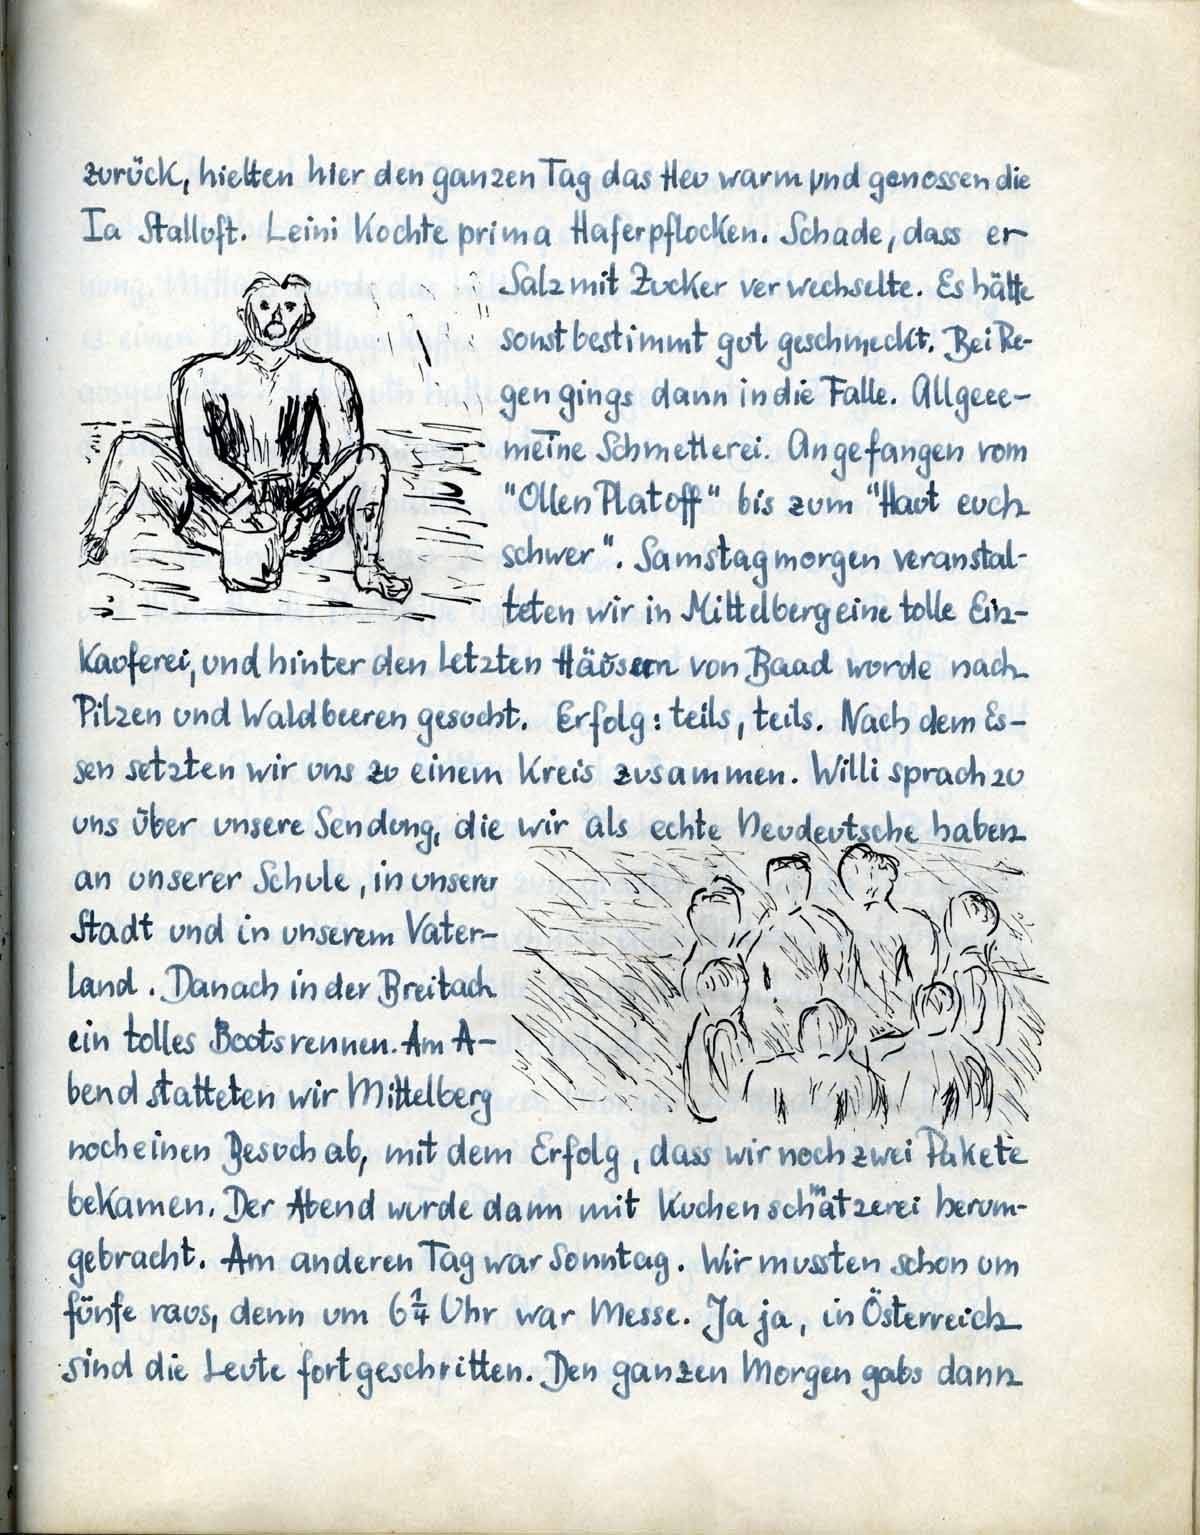 zurück, hielten hier den ganzen Tag das Heu warm und genossen die
Ia Stalluft. Leini kochte prima Haferpflocken. Schade, dass er
Salz mit Zucker verwechselte. Es hätte
sonst bestimmt gut geschmeckt. Bei Re-
gen gings dann in die Falle. Allgeee-
meine Schmetterei. Angefangen vom
"Ollen Platoff" bis zum "Haut euch
schwer". Samstagmorgen veranstal-
teten wir in Mittelberg eine tolle Ein-
kauferei, und hinter den letzten Häusern von Baad wurde nach
Pilzen und Waldbeeren gesucht. Erfolg: teils, teils. Nach dem Es-
sen setzten wir uns zu einem Kreis zusammen. Willi sprach zu
uns über unsere Sendung, die wir als echte Neudeutsche haben
an unserer Schule, in unserer
Stadt und in unserem Vater-
land. Danach in der Breitach
ein tolles Bootsrennen. Am A-
bend statteten wir Mittelberg
noch einen Besuch ab, mit dem Erfolg, dass wir noch zwei Pakete
bekamen. Der Abend wurde dann mit Kuchenschmatzerei herum-
gebracht. Am anderen Tag war Sonntag. Wir mussten schon um
fünfe raus, denn um 6 1/4 Uhr war Messe. Ja ja, in Österreich
sind die Leute fortgeschritten. Den ganzen Morgen gabs dann